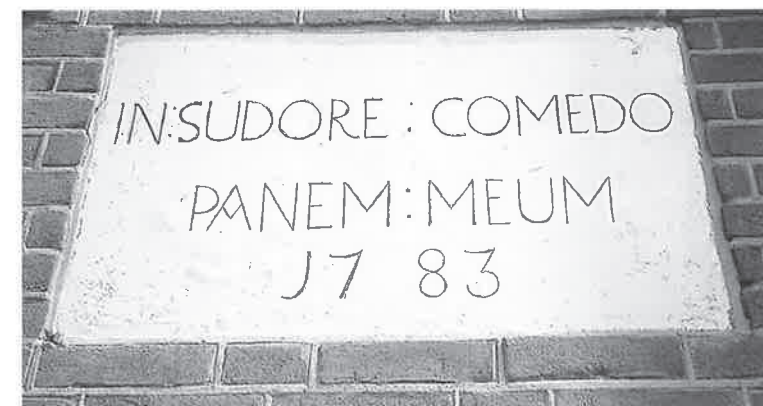 IN:SUDORE : COMEDO
PANEM:MEUM
J7 83